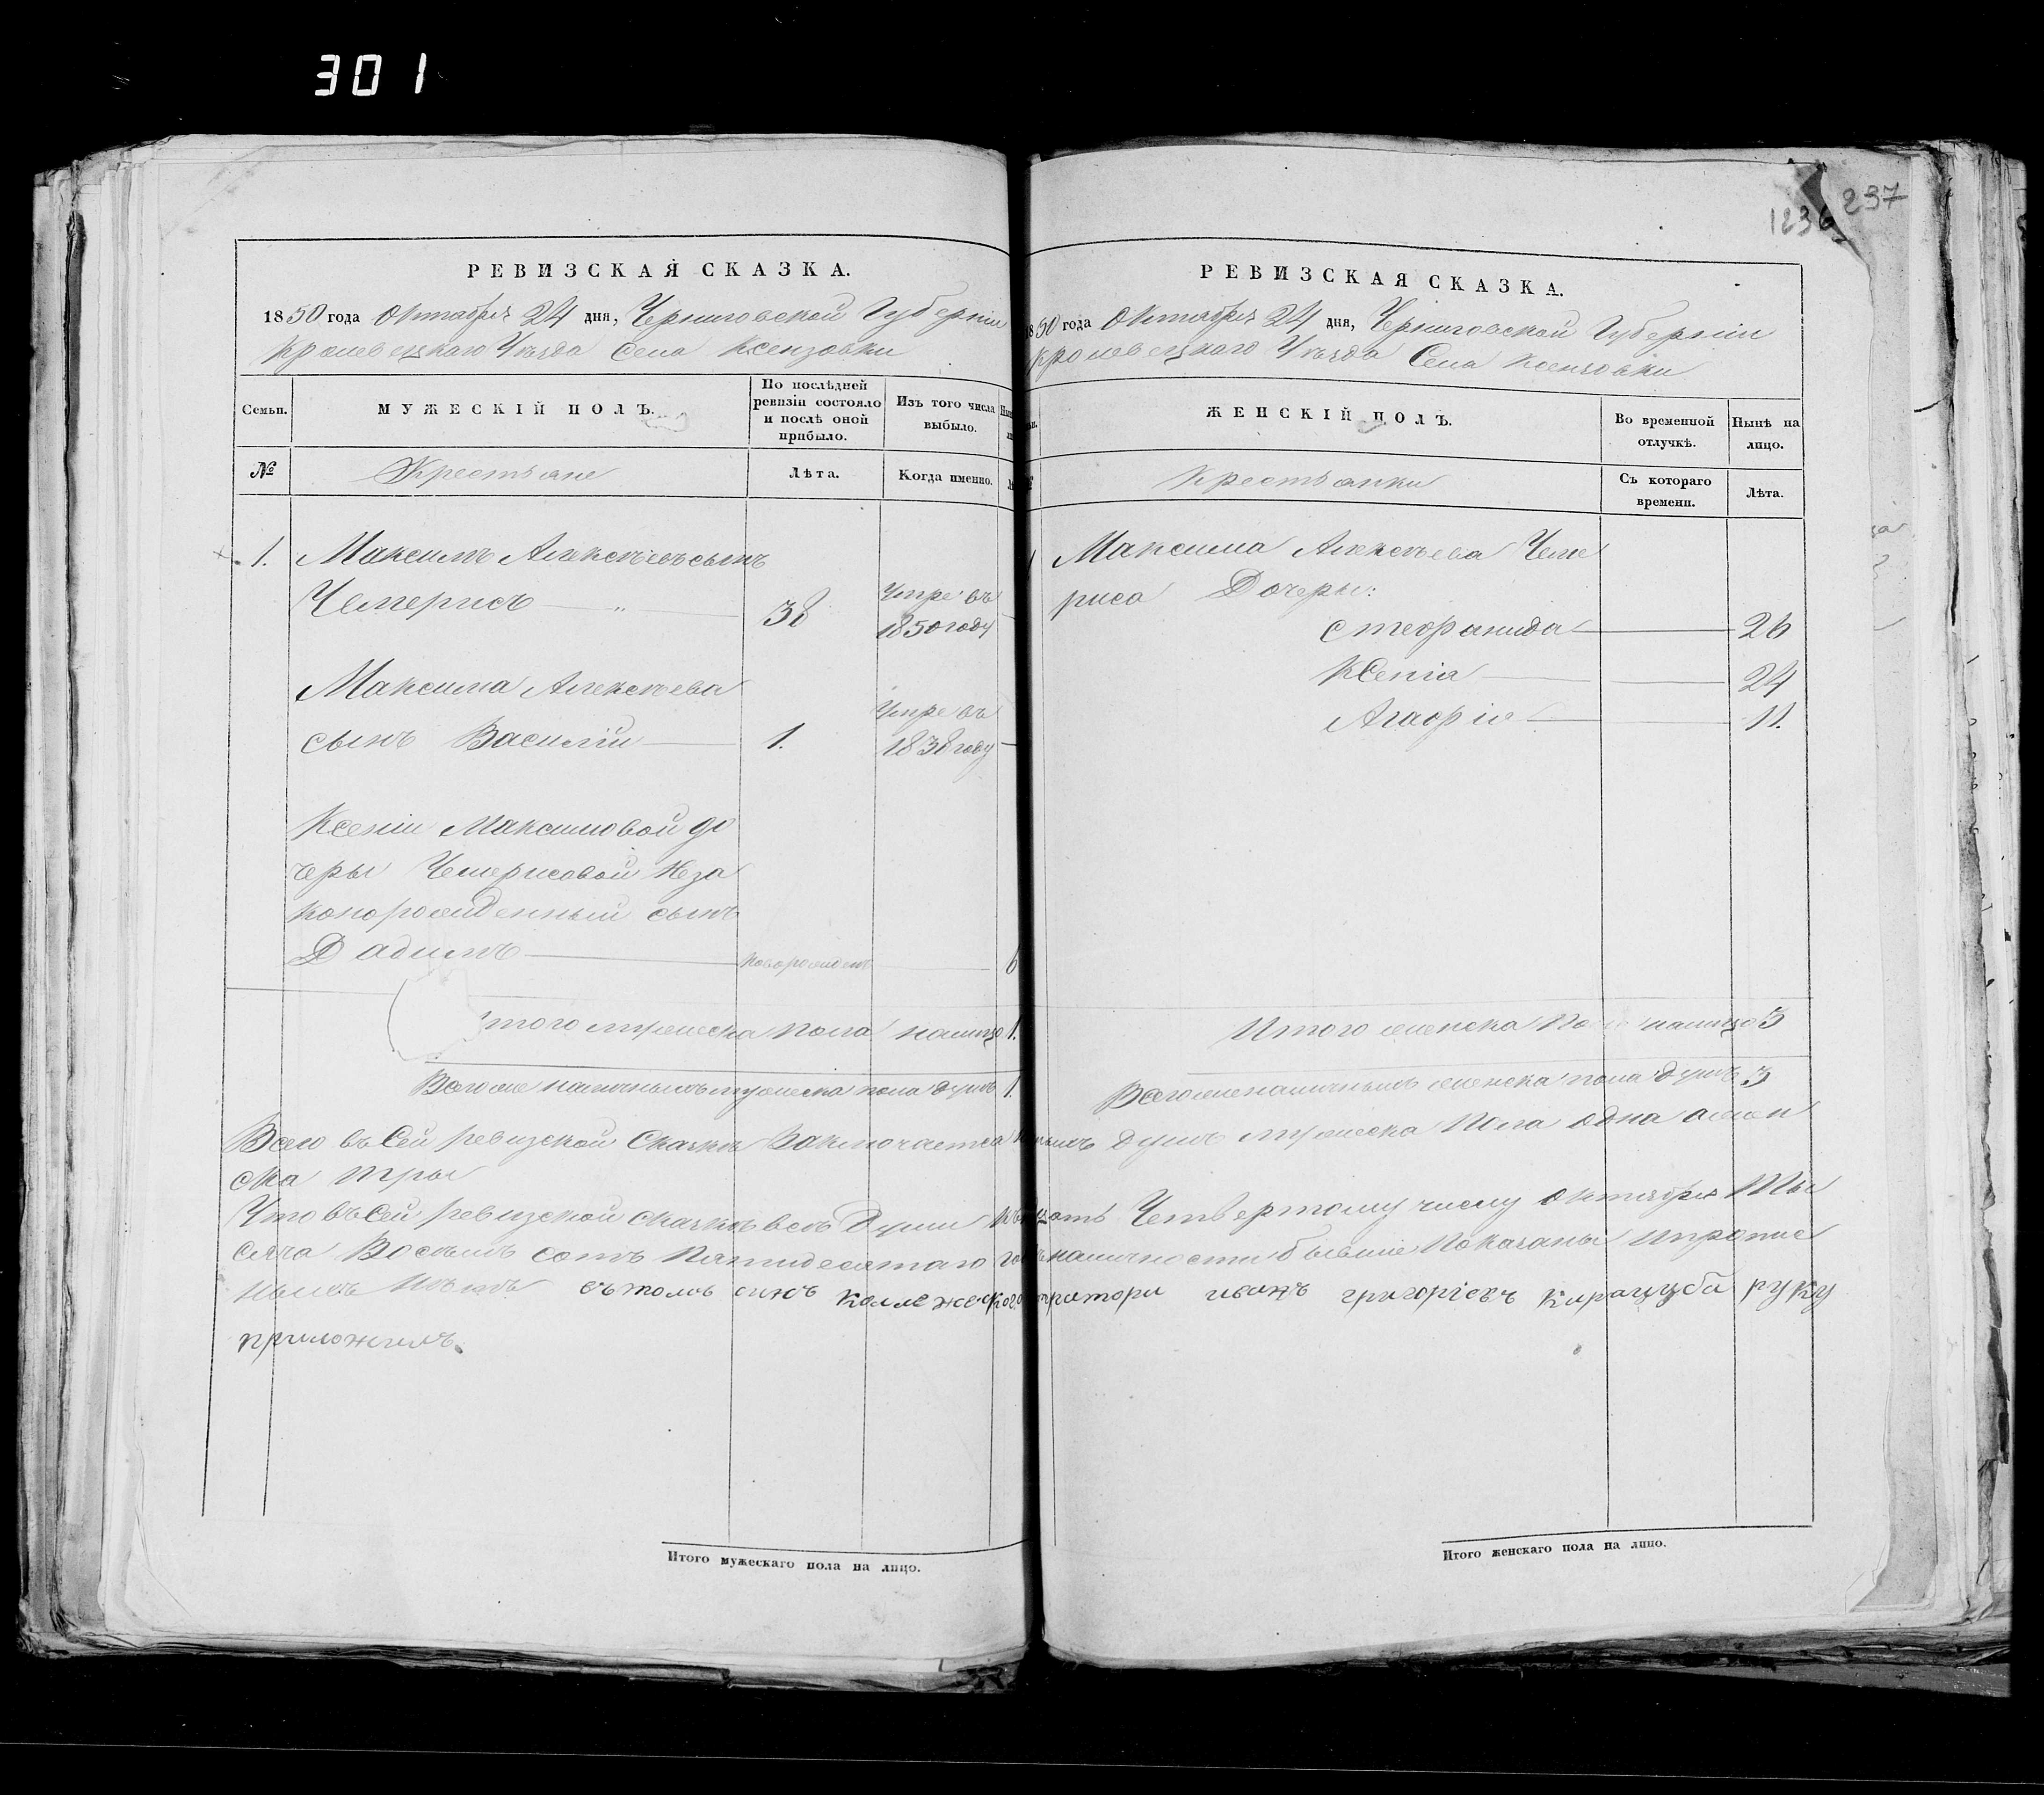 301
1236 237
РЕВИЗСКАЯ СКАЗКА.
1850 года Октября 24 дня, Черниговской Губерніи
Кролевецкаго Уѣзда Села Ксензовки
Семьи.
МУЖЕСКІЙ ПОЛЪ.
По послѣдней
ревизіи состояло
и послѣ оной
прибыло.
Изъ того числа
выбыло.
№
Крестьяне
Лѣта.
Когда именно.
1. Максимъ Алексѣевъ сынъ
Чемерисъ 38 Умре въ
1850 году
Максима Алексѣева
сынъ Василій 1. Умре въ
1838 году
Ксеніи Максимовой до
черы Чемерисовой Неза
конорожденный сынъ
новорожденъ 6
Итого мужеска пола налицо 1.
Всегоже наличныхъ мужеска пола душъ 1.
РЕВИЗСКАЯ СКАЗКА.
1850 года Октября 24 дня, Черниговской Губерніи
Кролевецкаго Уѣзда Села Ксензовки
ЖЕНСКІЙ ПОЛЪ.
Во временной
отлучкѣ.
Нынѣ на
лицо.
Крестьянки
Съ котораго
времени.
Лѣта.
Максима Алексѣева Чеме
риса Дочеры:
Стефанида 26
Ксенія 24
Агафія 11.
Итого женска пола налицо 3
Всегоже наличныхъ женска пола душъ 3
Всего въ Сей ревизской Сказкѣ Заключается душъ мужеска Пола одна а жен
ска тры
Что въ Сей ревизской сказкѣ всѣ Души Четвертому числу октября Ты
сяча Восемъ сотъ Пятидесятаго наличности бывшие Показаны и пропис
ныхъ Нѣтъ въ томъ иванъ григоріевъ руку
приложилъ.
Итого мужескаго пола на лицо.
Итого женскаго пола на лицо.